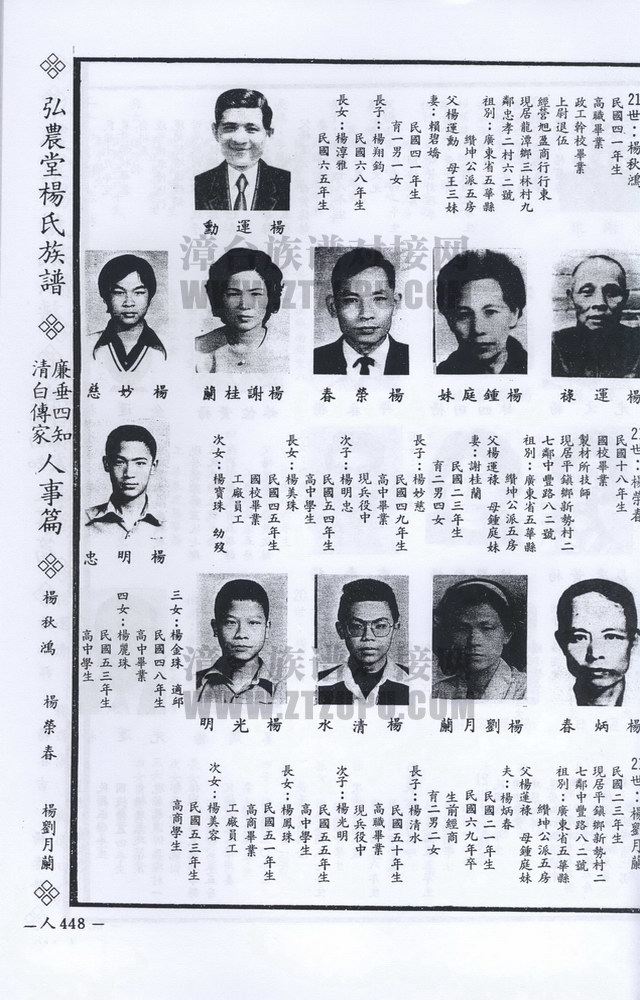 弘農堂楊氏族譜
廉垂四知
清白傳家
人事篇
楊秋鴻
楊榮春
楊劉月蘭
21世：楊秋鴻
民國四一年生
高職畢業
政工幹校畢業
上尉退伍
經營旭盈商行行東
現居龍潭鄉三林村九
鄰忠孝二村六二號
祖別：廣東省五華縣
纘坤公派五房
父楊運勳　母王三妹
妻：賴碧嬌
民國四一年生
育一男一女
長子：楊翔鈞
民國六八年生
長女：楊淳雅
民國六五年生
楊運勳
楊運祿
楊鍾庭妹
楊榮春
楊謝桂蘭
楊妙慈
楊榮春
民國十八年生
國校畢業
製材所技師
現居平鎮鄉新勢村二
七鄰中豐路八二號
祖別：廣東省五華縣
纘坤公派五房
父楊運祿　母鍾庭妹
妻：謝桂蘭
民國二三年生
育二男四女
長子：楊妙慈
民國四九年生
高中畢業
現兵役中
次子：楊明忠
民國五四年生
高中學生
長女：楊美珠
民國四五年生
國校畢業
工廠員工
次女：楊寶珠　幼歿
三女：楊金珠　適邱
民國四八年生
高中畢業
四女：楊麗珠
民國五三年生
高中學生
楊明忠
楊炳春
楊劉月蘭
楊清水
楊光明
楊劉月蘭
民國二三年生
現居平鎮鄉新勢村二
七鄰中豐路八二號
祖別：廣東省五華縣
纘坤公派五房
父楊運祿　母鍾庭妹
夫：楊炳春
民國二一年生
民國六九年卒
生前經商
育二男二女
長子：楊清水
民國五十年生
高職畢業
現兵役中
次子：楊光明
民國五五年生
高中學生
長女：楊鳳珠
民國五一年生
高商畢業
工廠員工
次女：楊美容
民國五三年生
高商學生
—人448—
漳台族谱对接网
WWW.ZTZUPU.COM
漳台族谱对接网
WWW.ZTZUPU.COM